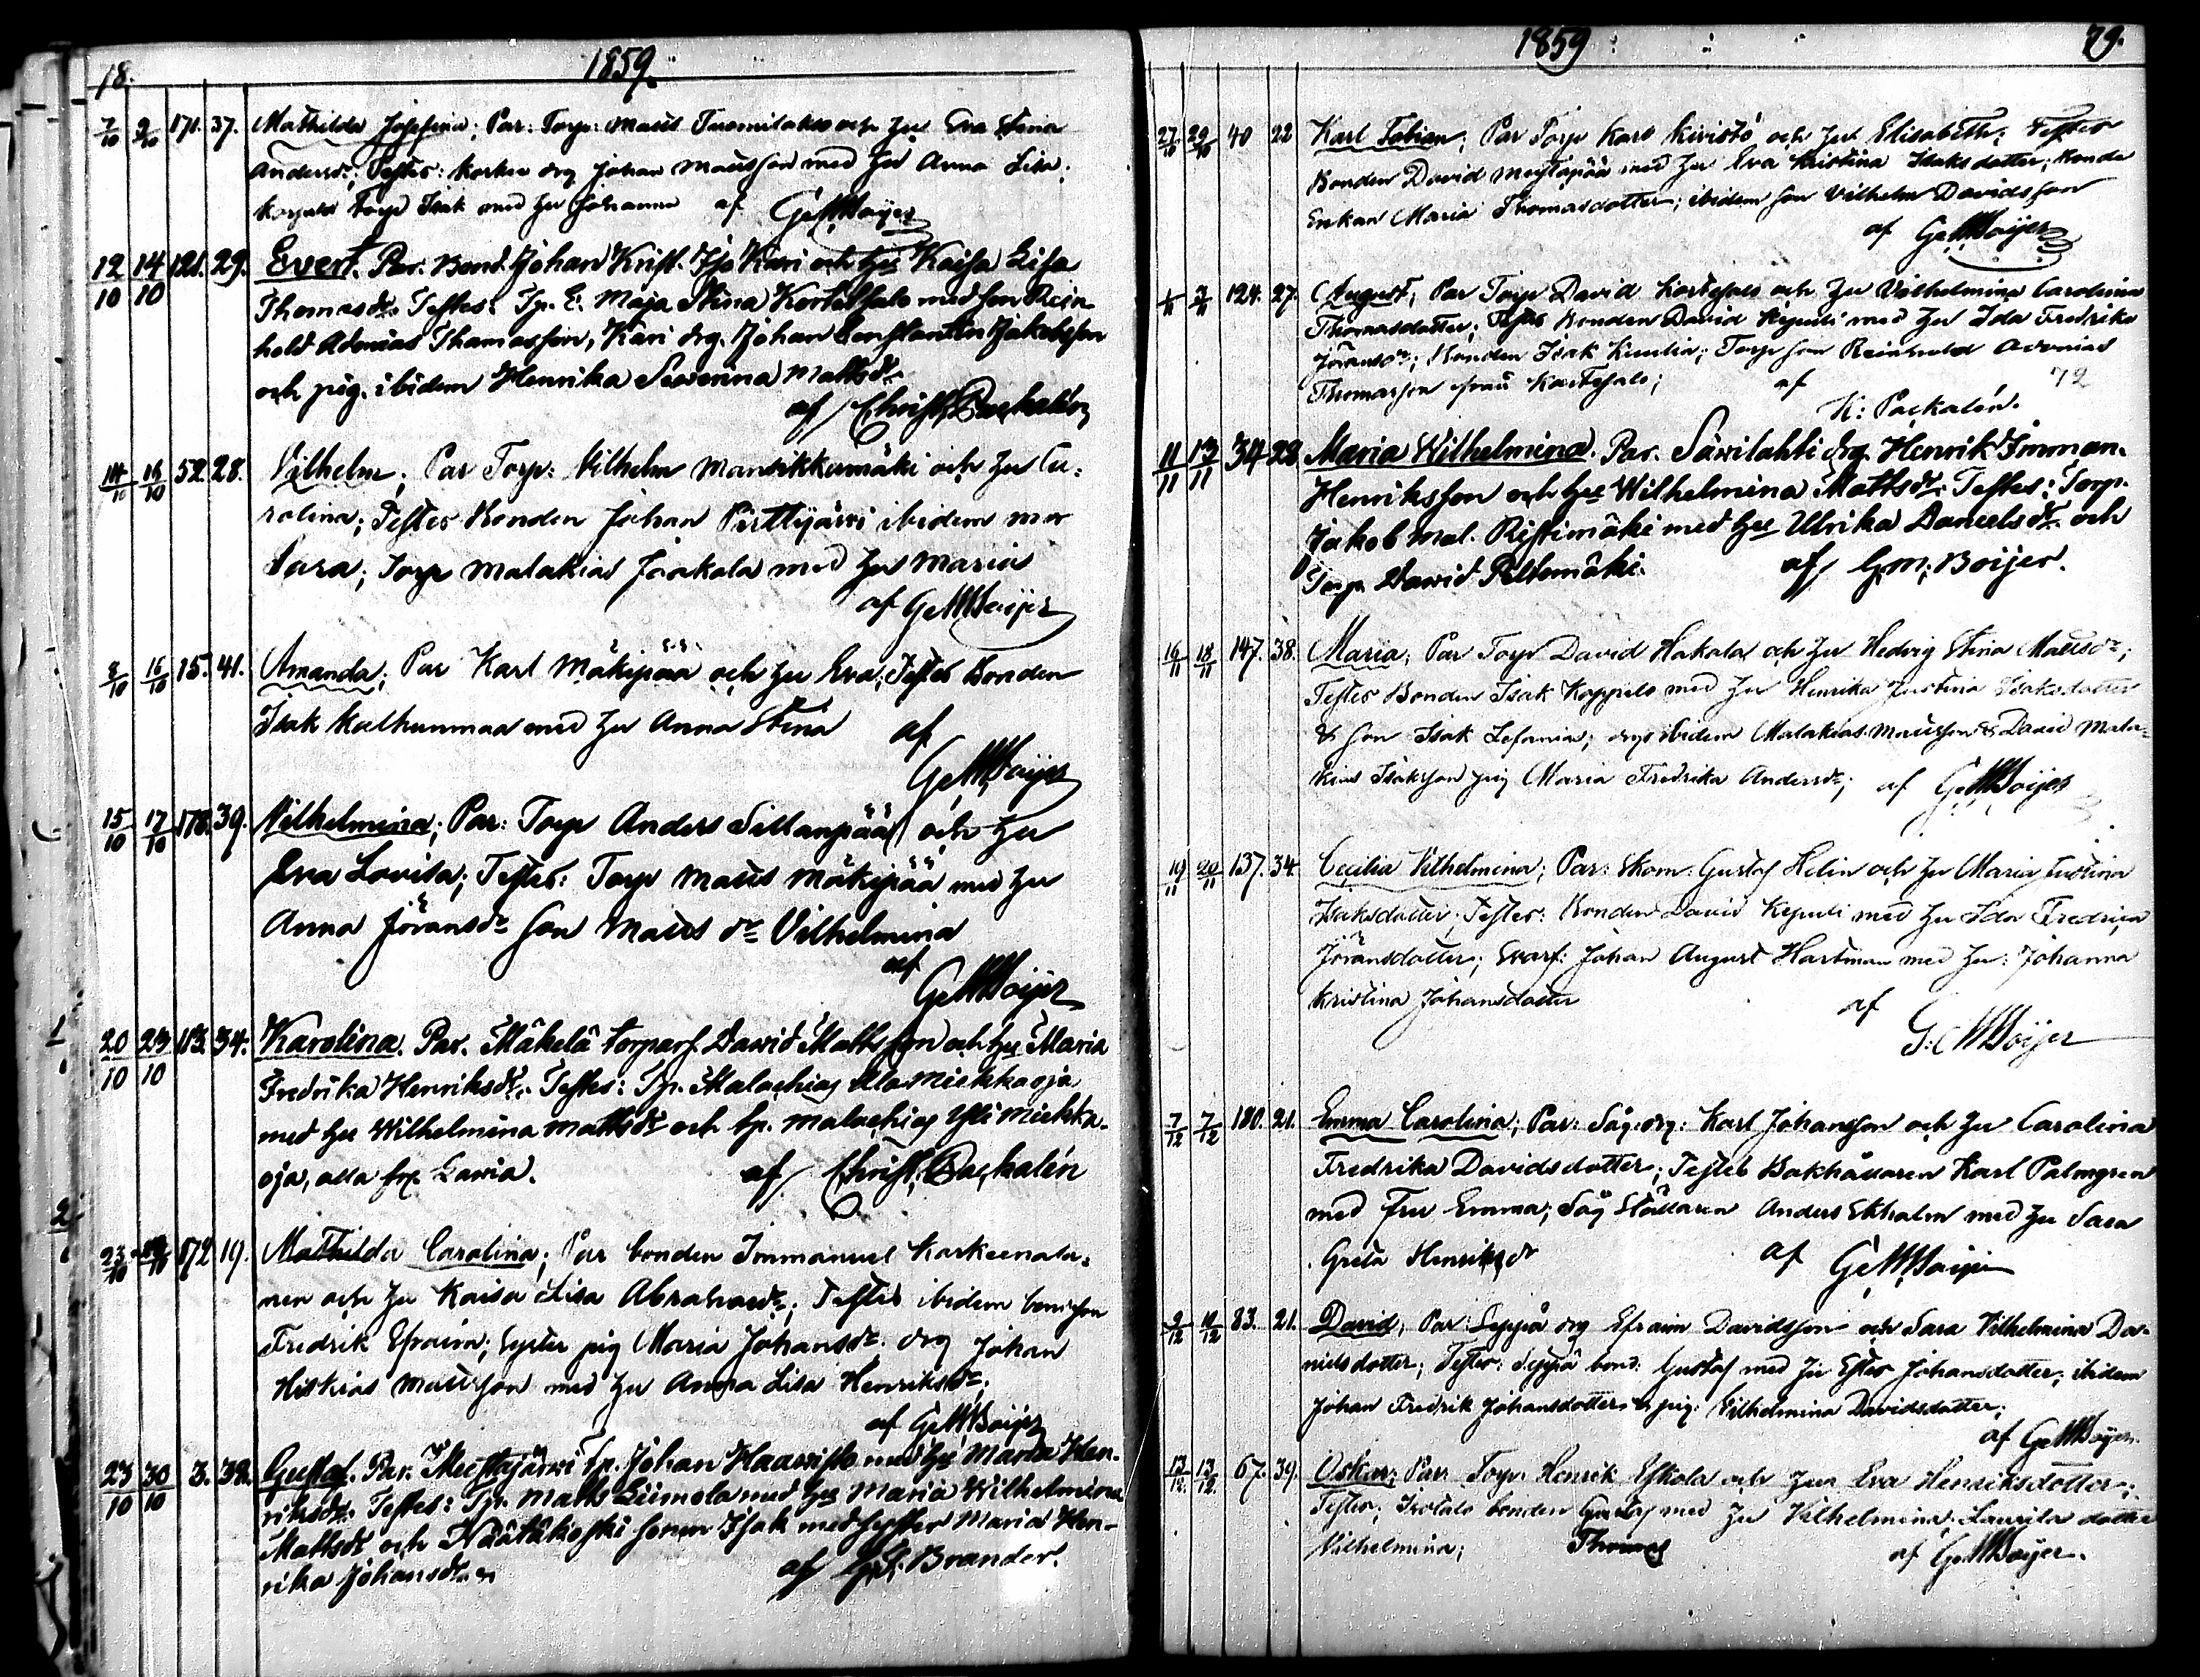 18.
1859
7/10 9/10 171. 37. Mathilda Josefina; Par: Torp: Matts Tuomilakso och hu Eva Stina
Andersdr; Testes: Korkea drg Johan Mattsson med hu Anna Lisa;
Torp Isak med hu Johanna af GMBoijer
12/10 14/10 121. 29. Evert. Par. Bond. Johan Krist. Iso Kari och hu Kaisa Lisa
Thomasdr. Testes: Tp. E. Maja Stina Kortessalo med son Rein-
hold Adonias Thomasson, Kari drg. Johan Constantin Jakobsson
och pig. ibidem Henrika Severina Mattsdr.
af Christ. Packalén
14/10 16/10 52. 28. Vilhelm; Par Torp: Vilhelm Mansikkamäki och hu Ca-
rolina; Testes Bonden Johan Pirttijärvi ibidem mor
Sara; Torp Malakias Jaakola med hu Maria
af GMBoijer
8/10 16/10 15. 41. Amanda; Par Karl Mäkipää och hu Eva; Testes Bonden
Isak Kalhunmaa med hu Anna Stina af
GMBoijer
15/10 17/10 178. 39. Vilhelmina; Par: Torp Anders Sillanpää och hu
Eva Lovisa; Testes: Torp Matts Mäkipää med hu
Anna Jöransdr son Matts dr Vilhelmina
af
GMBoijer
20/10 23/10 183. 34. Karolina. Par. Mäkelä torpars. David Mattsson och hu Maria
Fredrika Henriksdr. Testes: Tp. Malachias Ala Miekkaoja
med hu Wilhelmina Mattsdr och tp. Malachias Yli Miekka-
oja, alla fr. Lavia. af Christ. Packalén
23/10 172 19. Mathilda Carolina; Par bonden Immanuel Karkeenala-
nen och hu Kaisa Lisa Abrahamsdr; Testes ibidem bondson
Fredrik Efraim; Syster pig Maria Johansdr. drg Johan
Hiskias Mattsson med hu Anna Lisa Henriksdr;
af GMBoijer
23/10 30/10 3. 38. Gustaf. Par. Mustajärvi tp. Johan Haavisto med hu Maria Hen-
riksdr. Testes: Tp. Matts Liimola med hu Maria Wilhelmina
Mattsdr och Näätäkoski sonen Isak med syster Maria Hen-
rika Johansdr. af G.S. Brander.
1859
79.
27/10 29/10 40 22 Karl Fabian; Par Torp Karl Kivistö och hu Elisabeth; Testes
Bonden David Mustapää med hu Eva Kristina Isaksdotter; Bonde
Enkan Maria Thomasdotter; ibidem son Vilhelm Davidsson
af GMBoijer
124. 27. August; Par Torp David Kortesalo och hu Vilhelmina Carolina
Thomasdotter; Testes Bonden David Kepuli med hu Ida Fredrika
Jöransdr; Bonden Isak; Torp son Reinhold Adonias
Thomasson från Kortesalo; af 72
K: Packalén.
11/11 13/11 34 28 Maria Wilhelmina. Par. Särvilahti drg. Henrik Imman.
Henriksson och hu Wilhelmina Mattsdr. Testes: Torp.
Jakob Mal. Ristimäki med hu Ulrika Danielsdr. och
Torp. David Peltomäki. af G.M. Boijer.
16/11 18/11 147. 38. Maria; Par Torp David Hakala och hu Hedvig Stina Mattsdr;
Testes Bonden Isak Koppelo med hu Henrika Justina Isaksdotter
& son Isak Zefanias; drgr ibidem Malakias Mattsson & David Mala-
kias Isaksson pig Maria Fredrika Andersdr; af GMBoijer
19/11 20/11 137. 34. Cecilia Vilhelmina; Par: Skom: Gustaf Helin och hu Maria Justina
Isaksdotter; Testes: Bonden David Kepuli med hu Ida Fredrika
Jöransdotter; Svarf: Johan August Hartman med hu: Johanna
Kristina Johansdotter af
G:MBoijer
7/12 7/12 180. 21. Emma Carolina; Par: Såg.drg: Karl Johansson och hu Carolina
Fredrika Davidsdotter; Testes Bokhållaren Karl Palmgren
med Fru Emma; Såg Ställaren Anders Ekholm med hu Sara
Greta Henriksdr af GMBoijer
9/12 10/12 83. 21. David; Par: Seppä drg Efraim Davidsson och Sara Vilhelmina Da-
nielsdotter; Testes: Seppä bond: Gustaf med hu Ester Johansdotter; ibidem
Johan Fredrik Johansdotter & pig: Vilhelmina Davidsdotter;
af GMBoijer.
13/12 13/12 67. 39. Oskar; Par Torp. Henrik Eskola och hu Eva Henriksdotter;
Testes; Isotalo bonden Gustaf med hu Vilhelmina; Laurila dotter
Vilhelmina; Thomas af GMBoijer.